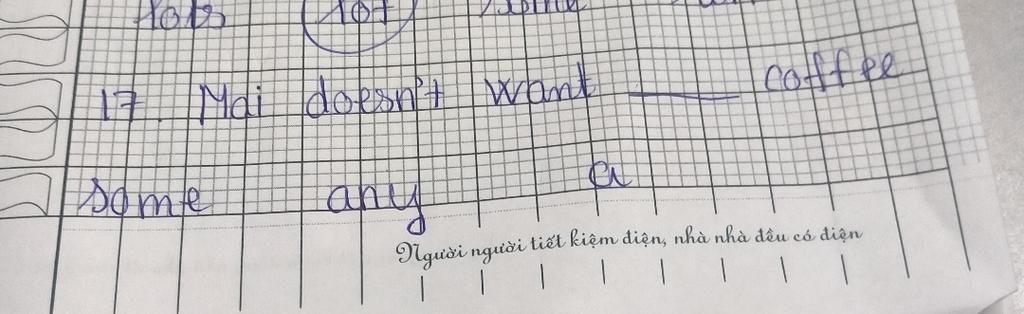 17. Mai doesn't want ____ coffee
some any a
Người người tiết kiệm điện, nhà nhà đều có điện